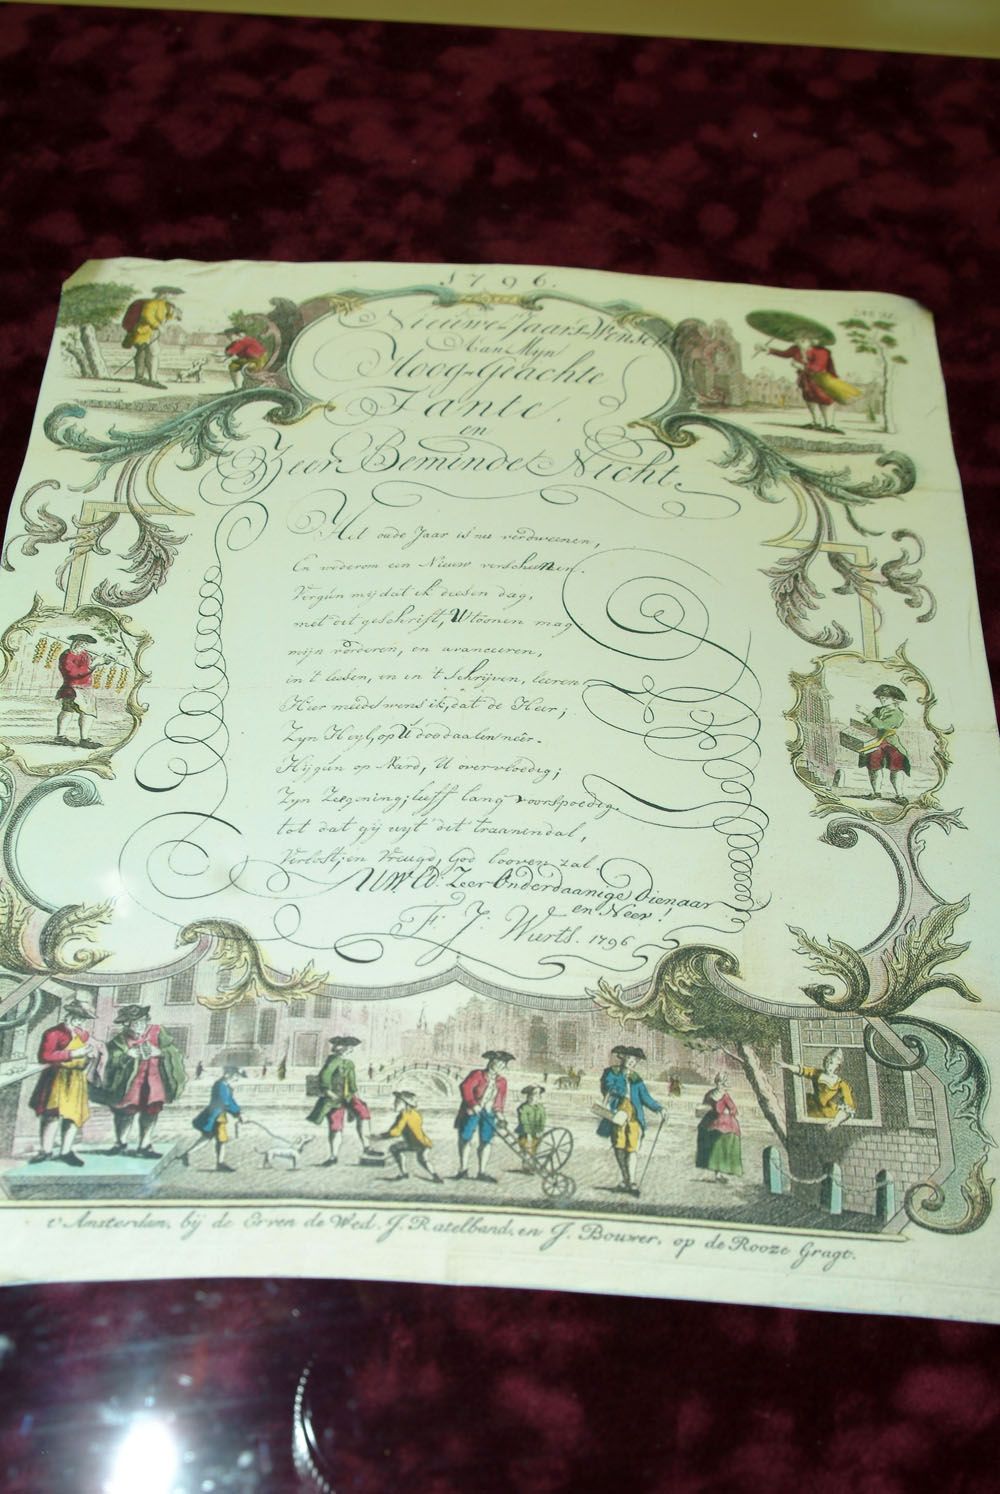 1796.
Nieuwe-Jaars-Wensch
Aan Mijn
Hoog-Geachte
Tante,
en
Zeer Beminde Nicht.
Het oude Jaar is nu verdweenen,
En wederom een Nieuw verscheenen.
Vergun mij dat ik deesen dag,
met dit geschrift, U toonen mag
mijn vorderen, en avanceeren,
in 't leesen, en in 't Schrijven, leeren
Hier meede wens ik, dat de Heer;
Zyn Heyl, op U doe daalen neêr.
Hij gun op Aard, U overvloedig;
Zyn Zeegening; leeff lang voorspoedig.
tot dat gij uyt dit traanendal,
Verlost; en Vreugd, God looven zal.
UWEd. Zeer Onderdaanige Dienaar
en Neef!
F: J: Wurts. 1796
t' Amsterdam, bij de Erven de Wed. J. Ratelband, en J. Bouwer, op de Rooze Gragt.